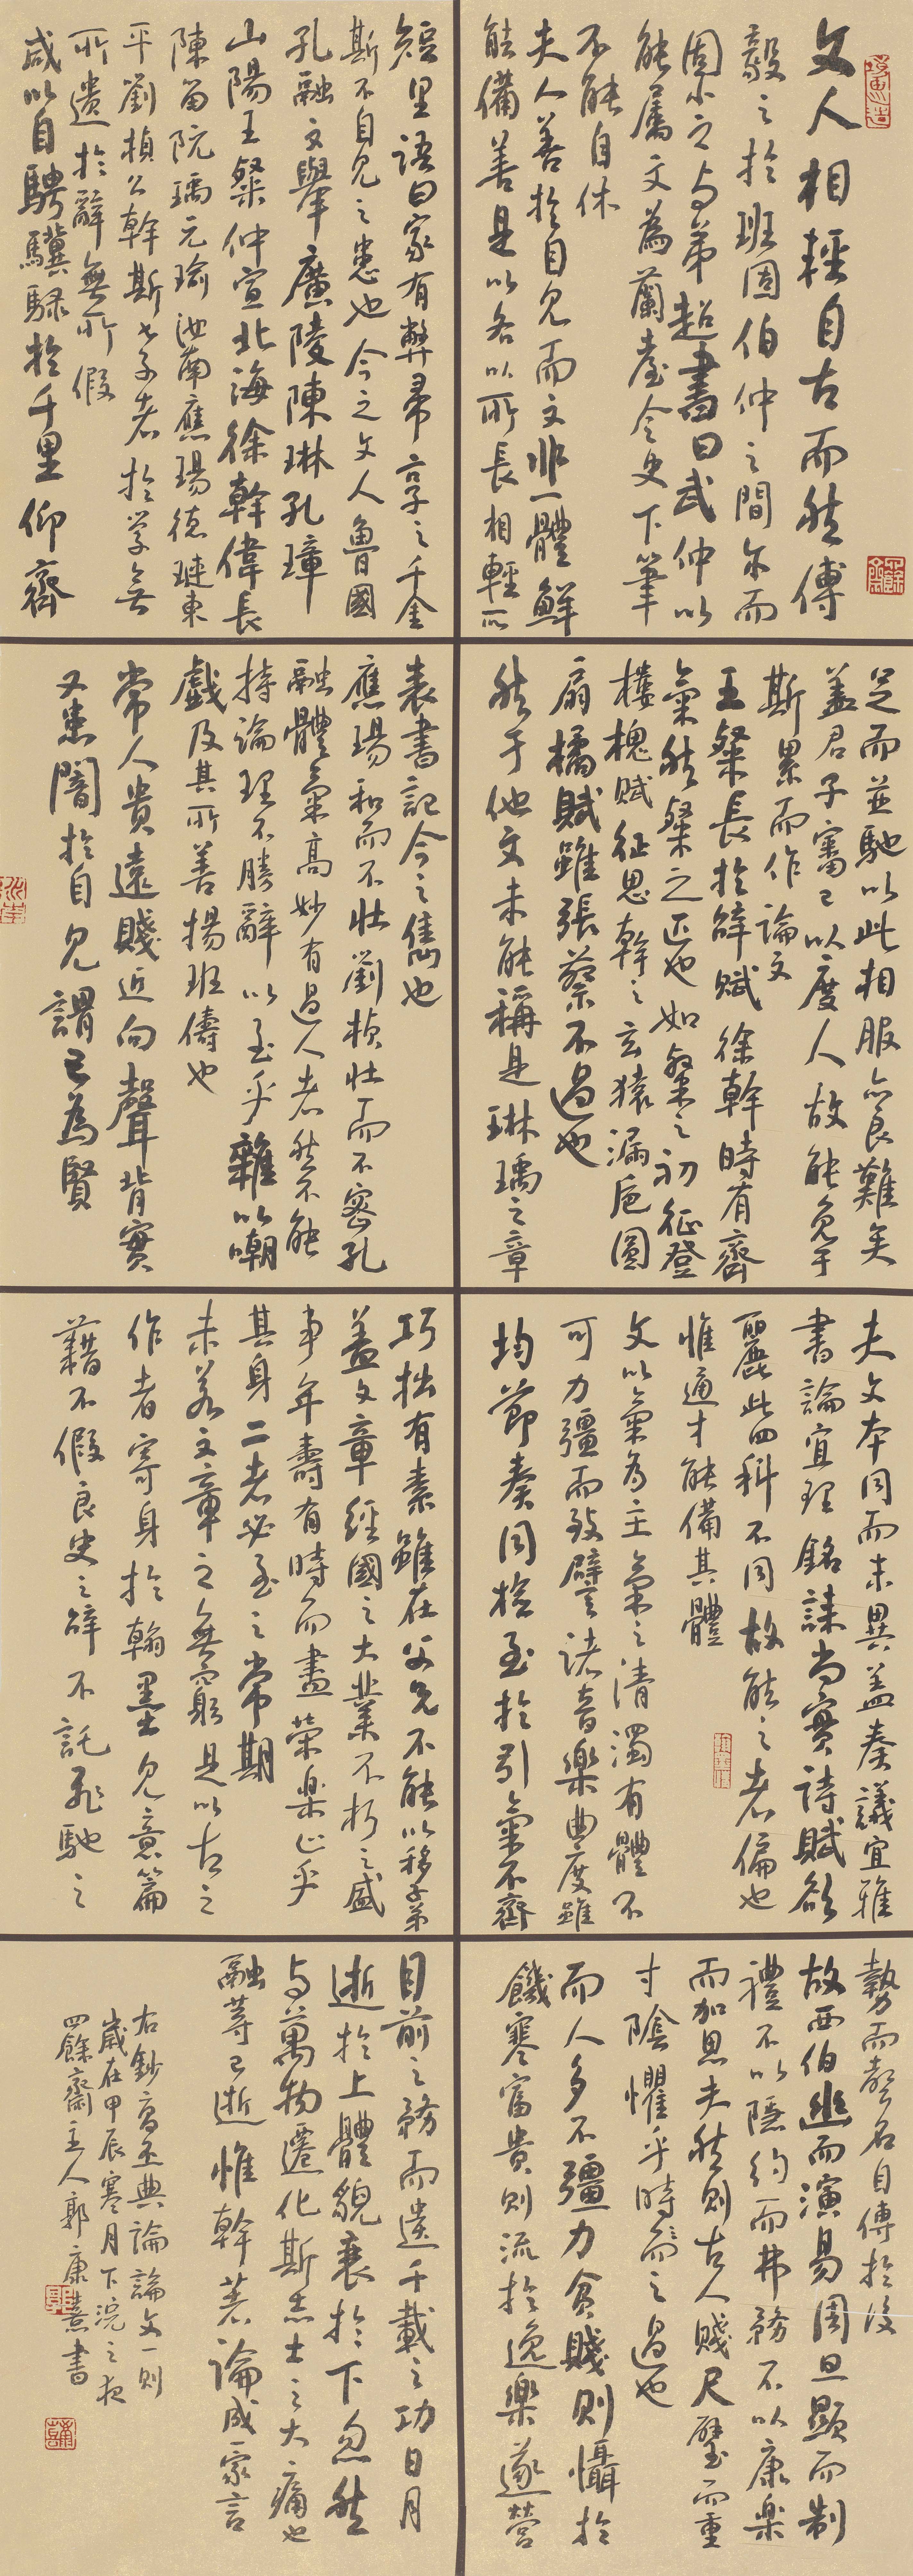 文人相輕自古而然傅
毅之於班固伯仲之間尔而
固小之与弟超書曰武仲以
能屬文為蘭臺令史下筆
不能自休
夫人善於自見而文非一體鮮
能備善是以各以所長相輕所
短里語曰家有弊帚享之千金
斯不自見之患也今之文人魯國
孔融文舉廣陵陳琳孔璋
山陽王粲仲宣北海徐幹偉長
陳留阮瑀元瑜汝南應瑒德璉東
平劉楨公幹斯七子者於学無
所遺於辭無所假
咸以自騁驥騄於千里仰齊
足而並馳以此相服亦良難矣
蓋君子審己以度人故能免于
斯累而作論文
王粲長於辭賦徐幹時有齊
氣然粲之匹也如粲之初征登
樓槐賦征思幹之玄猿漏卮圓
扇橘賦雖張蔡不過也
然于他文未能稱是琳瑀之章
表書記今之雋也
應瑒和而不壯劉楨壯而不密孔
融體氣高妙有過人者然不能
持論理不勝辭以至乎雜以嘲
戲及其所善揚班儔也
常人貴遠賤近向聲背實
又患闇於自見謂己為賢
夫文本同而末異蓋奏議宜雅
書論宜理銘誄尚實詩賦欲
麗此四科不同故能之者偏也
惟通才能備其體
文以氣為主氣之清濁有體不
可力彊而致譬諸音樂曲度雖
均節奏同檢至於引氣不齊
巧拙有素雖在父兄不能以移子弟
蓋文章經國之大業不朽之盛
事年壽有時而盡榮樂止乎
其身二者必至之常期
未若文章之無窮是以古之
作者寄身於翰墨見意篇
藉不假良史之辭不託飛馳之
勢而聲名自傅於後
故西伯幽而演易周旦顯而制
禮不以隱約而弗務不以康樂
而加思夫然則古人賤尺璧而重
寸陰懼乎時之過也
而人多不彊力貧賤則懾於
饑寒富貴則流於逸樂遂營
目前之務而遺千載之功日月
逝於上體貌衰於下忽然
与萬物遷化斯志士之大痛也
融等已逝惟幹著論成一家言
右鈔曹丕典論論文一則
歲在甲辰寒月下浣之夜
四餘齋主人郭康熹書